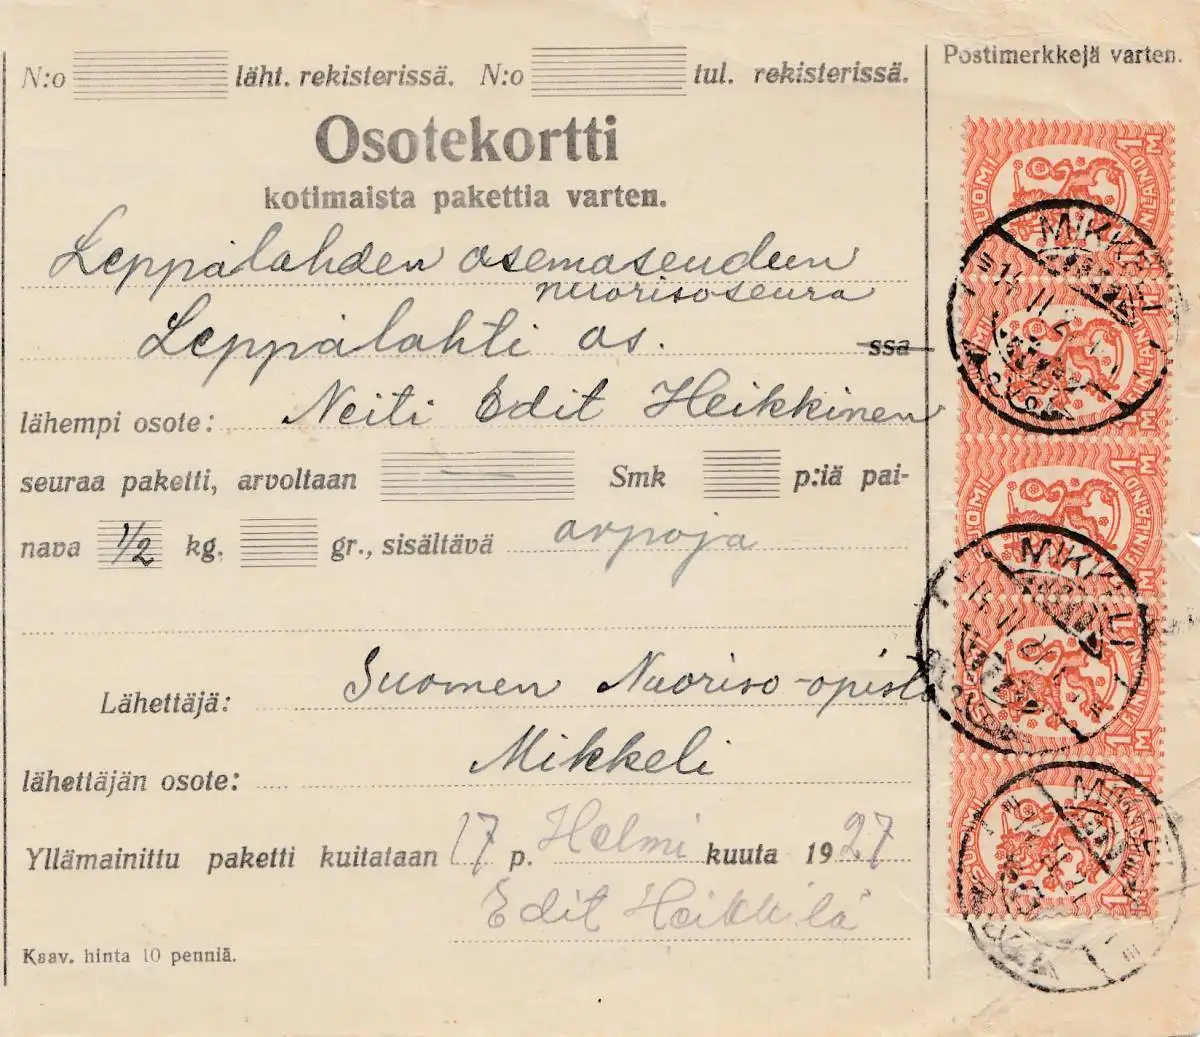 N:o läht. rekisterissä. N:o tul. rekisterissä.
Postimerkkejä varten.
Osotekortti
kotimaista pakettia varten.
Leppälahden asemaseudun
nuorisoseura
Leppälahti as. ssa
lähempi osote: Neiti Edit Heikkinen
seuraa paketti, arvoltaan Smk p:iä pai-
nava 1/2 kg. gr., sisältävä arpoja
Lähettäjä: Suomen Nuoriso-opisto
lähettäjän osote: Mikkeli
Yllämainittu paketti kuitataan 17 p. Helmi kuuta 1927
Edit Heikkilä
Kaav. hinta 10 penniä.
SUOMI 1 M FINLAND
MIKKELI
SUOMI 1 M FINLAND
SUOMI 1 M FINLAND
MIKKELI
SUOMI 1 M FINLAND
SUOMI 1 M FINLAND